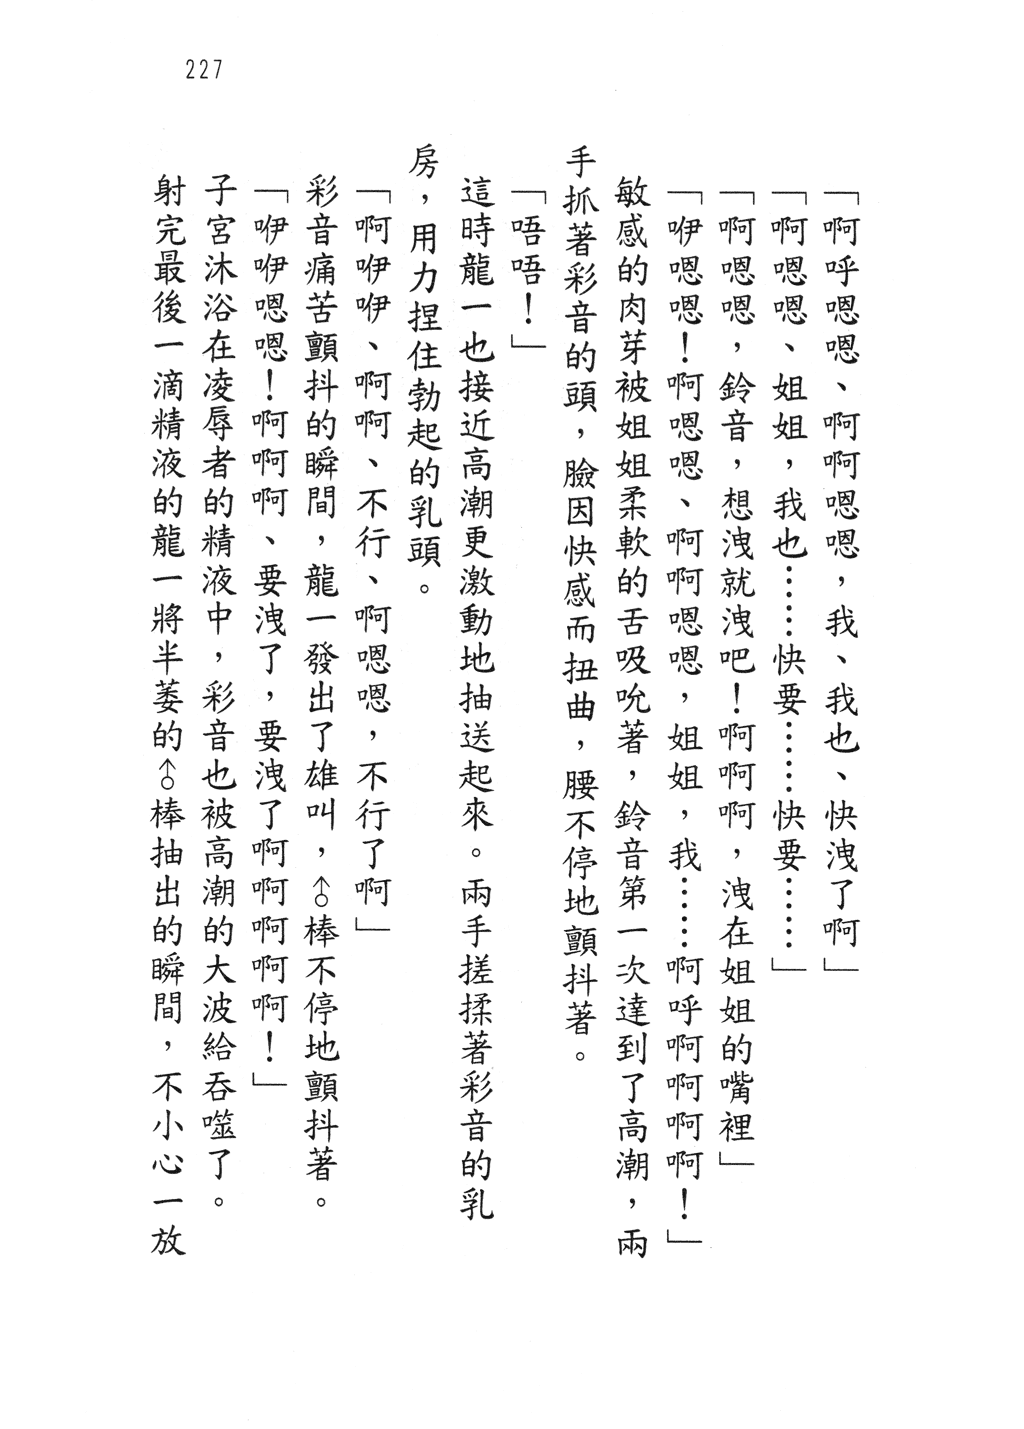 227
「啊呼嗯嗯、啊啊嗯嗯，我、我也、快洩了啊」
「啊嗯嗯、姐姐，我也……快要……快要……」
「啊嗯嗯，鈴音，想洩就洩吧！啊啊啊，洩在姐姐的嘴裡」
「咿嗯嗯！啊嗯嗯、啊啊嗯嗯，姐姐，我……啊呼啊啊啊啊！」
敏感的肉芽被姐姐柔軟的舌吸吮著，鈴音第一次達到了高潮，兩
手抓著彩音的頭，臉因快感而扭曲，腰不停地顫抖著。
「唔唔！」
這時龍一也接近高潮更激動地抽送起來。兩手搓揉著彩音的乳
房，用力捏住勃起的乳頭。
「啊咿咿、啊啊、不行、啊嗯嗯，不行了啊」
彩音痛苦顫抖的瞬間，龍一發出了雄叫，♂棒不停地顫抖著。
「咿咿嗯嗯！啊啊啊、要洩了，要洩了啊啊啊啊啊！」
子宮沐浴在凌辱者的精液中，彩音也被高潮的大波給吞噬了。
射完最後一滴精液的龍一將半萎的♂棒抽出的瞬間，不小心一放